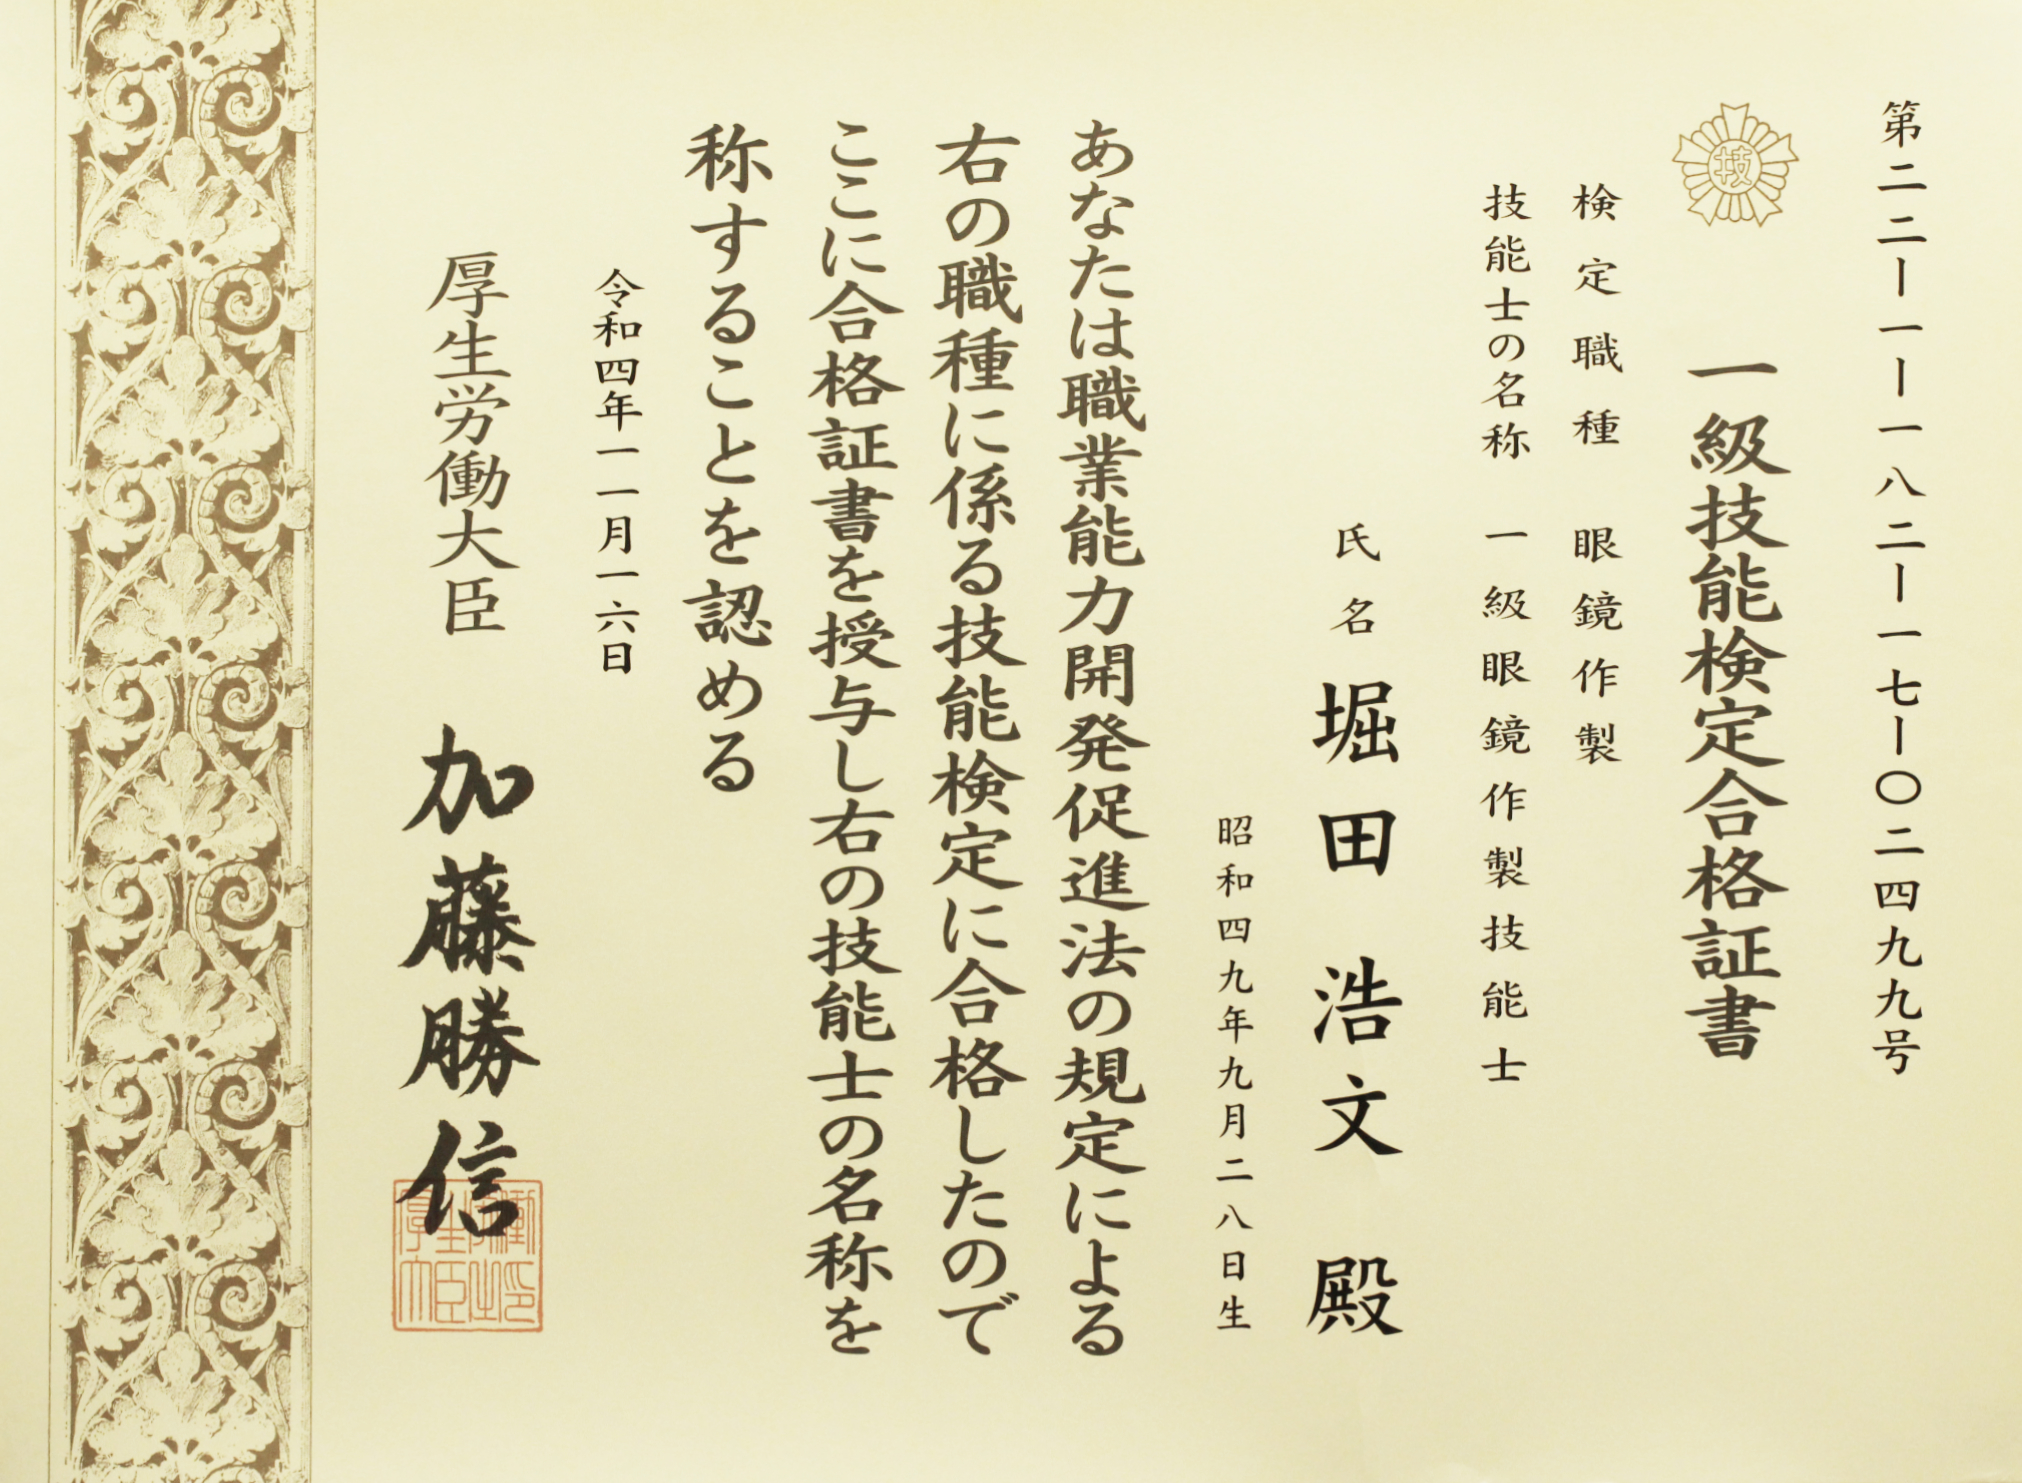 第二二ー一ー一八二ー一七ー〇二四九九号
技
一級技能検定合格証書
検定職種 眼鏡作製
技能士の名称 一級眼鏡作製技能士
氏名 堀田浩文 殿
昭和四九年九月二八日生
あなたは職業能力開発促進法の規定による
右の職種に係る技能検定に合格したので
ここに合格証書を授与し右の技能士の名称を
称することを認める
令和四年一一月一六日
厚生労働大臣 加藤勝信
厚生労働大臣之印